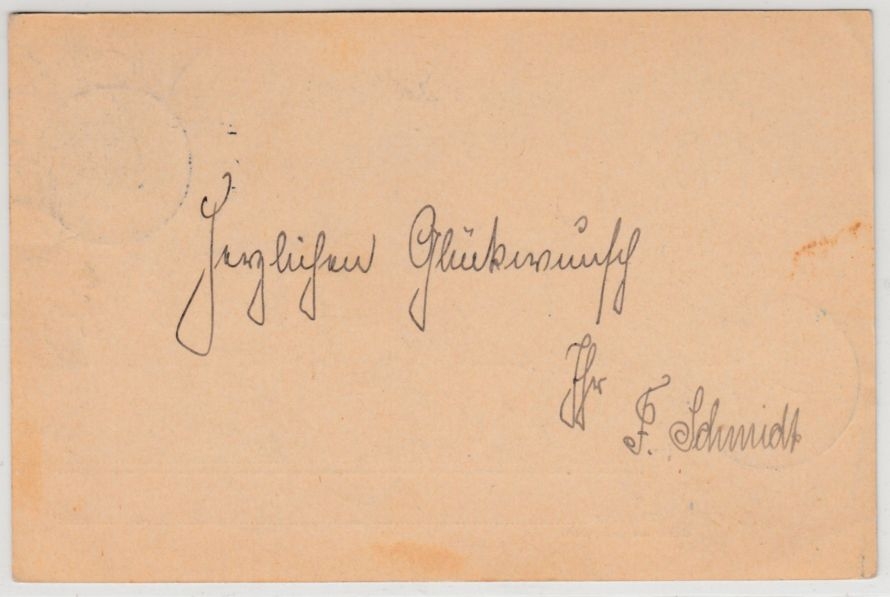 Herzlichen Glückwunsch
Ihr
F. Schmidt